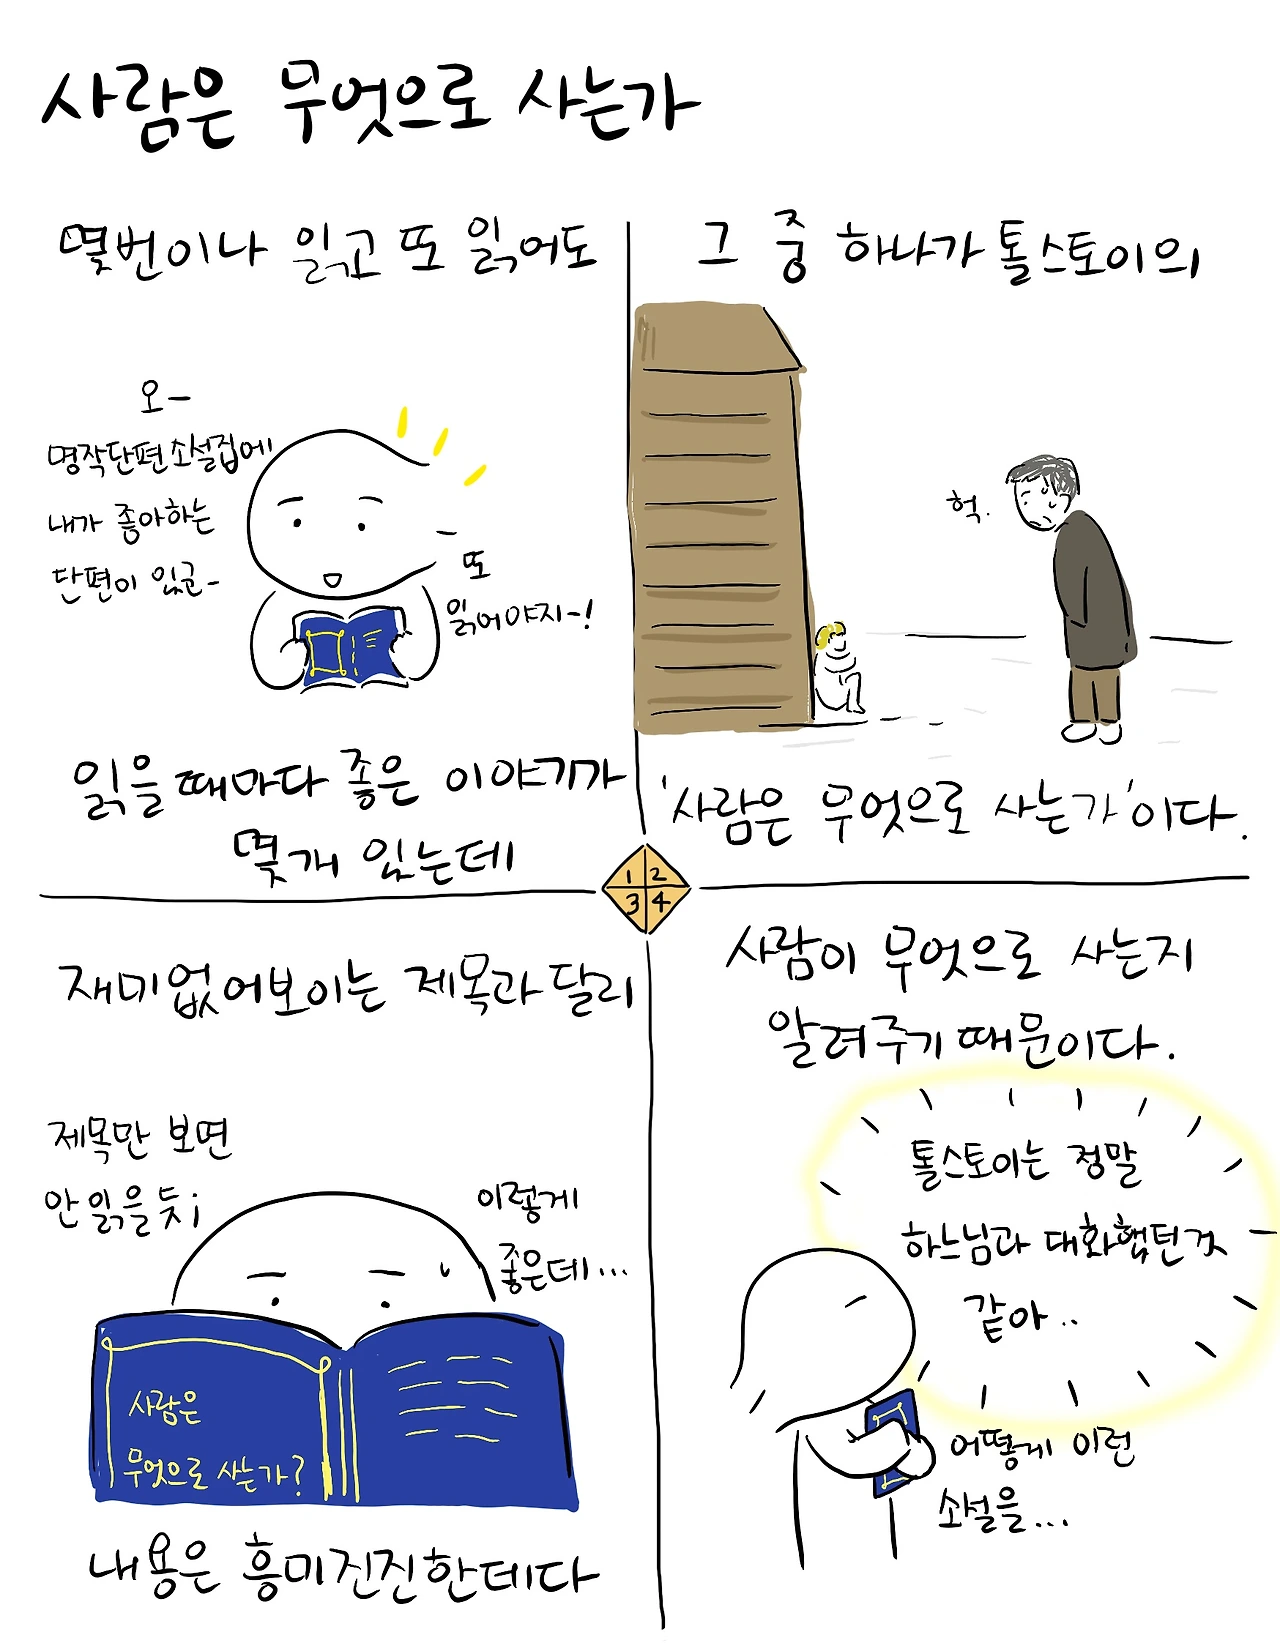 사람은 무엇으로 사는가
몇번이나 읽고 또 읽어도
오-
명작단편소설집에
내가 좋아하는
단편이 있군-
또
읽어야지-!
읽을때마다 좋은 이야기가
몇개 있는데
그 중 하나가 톨스토이의
헉.
'사람은 무엇으로 사는가'이다.
1 2
3 4
재미없어보이는 제목과 달리
제목만 보면
안 읽을 듯;
이렇게
좋은데...
사람은
무엇으로 사는가?
내용은 흥미진진한데다
사람이 무엇으로 사는지
알려주기 때문이다.
톨스토이는 정말
하느님과 대화했던것
같아..
어떻게 이런
소설을...